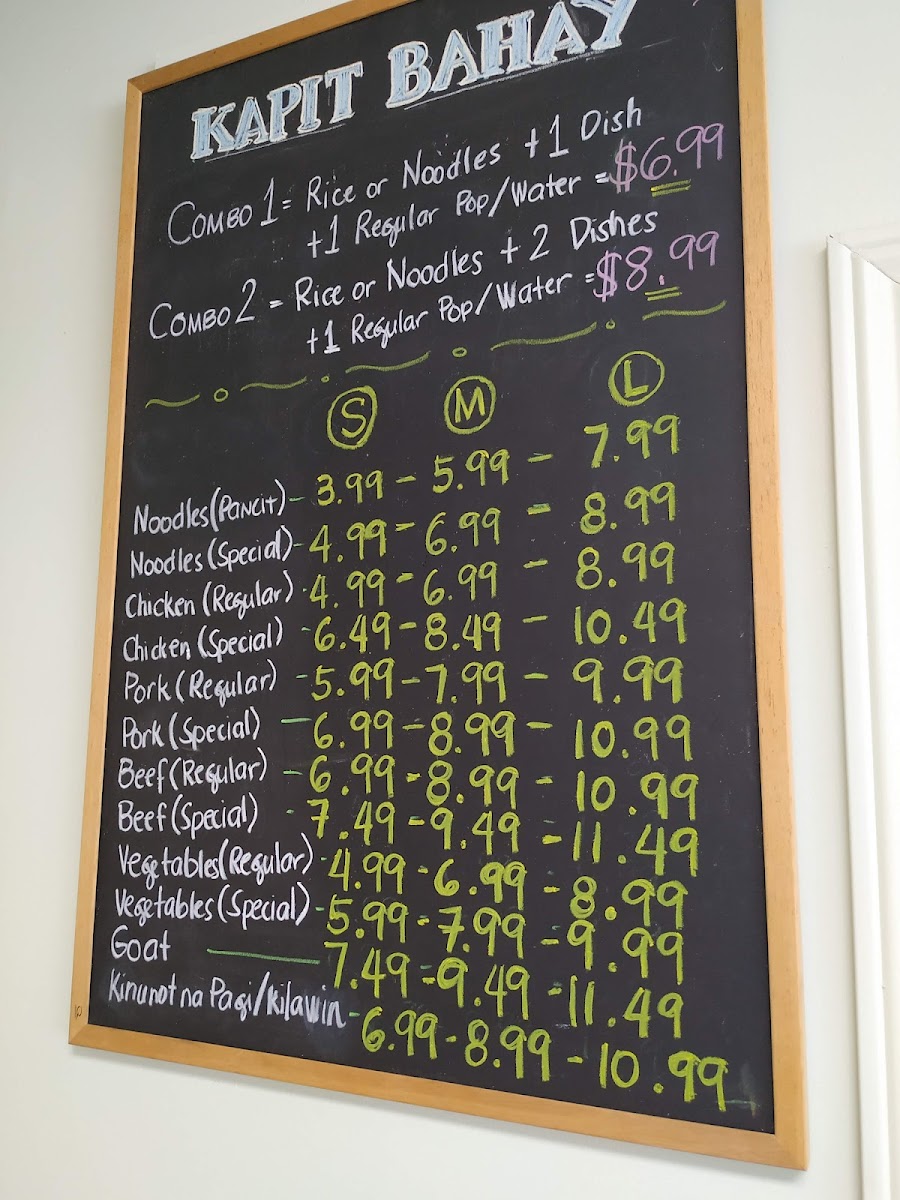 KAPIT BAHAY
COMBO 1 = Rice or Noodles +1 Dish
+1 Regular Pop/Water = $6.99
COMBO 2 = Rice or Noodles + 2 Dishes
+1 Regular Pop/Water = $8.99
S M L
Noodles (Pancit) - 3.99 - 5.99 - 7.99
Noodles (Special) - 4.99 - 6.99 - 8.99
Chicken (Regular) - 4.99 - 6.99 - 8.99
Chicken (Special) - 6.49 - 8.49 - 10.49
Pork (Regular) - 5.99 - 7.99 - 9.99
Pork (Special) - 6.99 - 8.99 - 10.99
Beef (Regular) - 6.99 - 8.99 - 10.99
Beef (Special) - 7.49 - 9.49 - 11.49
Vegetables (Regular) - 4.99 - 6.99 - 8.99
Vegetables (Special) - 5.99 - 7.99 - 9.99
Goat - 7.49 - 9.49 - 11.49
Kinunot na Pagi/Kilawin - 6.99 - 8.99 - 10.99